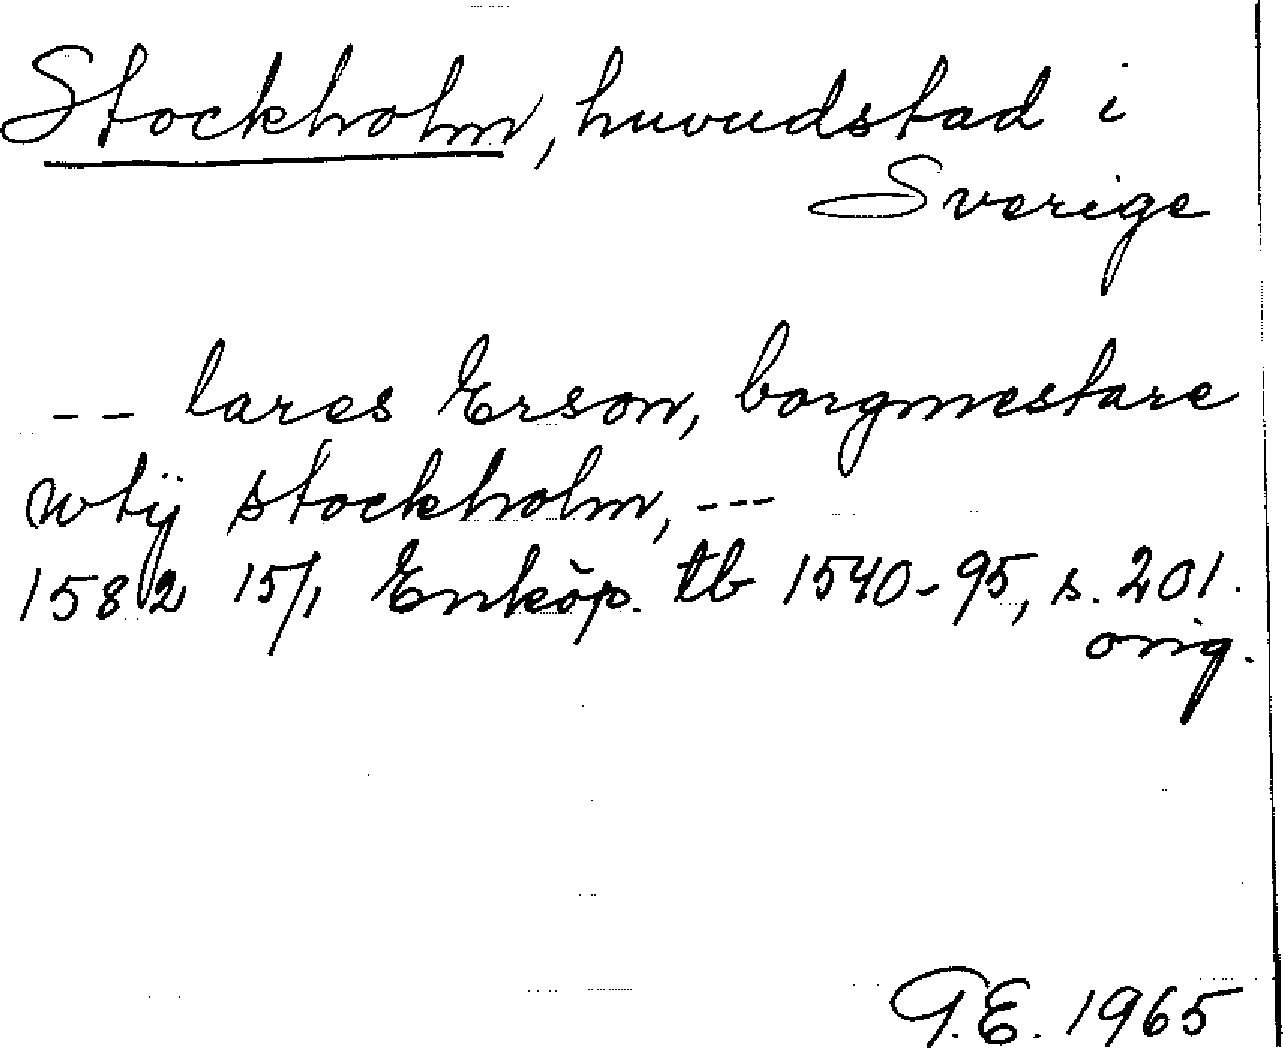 Stockholm, huvudstad i
Sverige
-- lares Erson, borgmestare
wtij stockholm, ---
1582 15/1 Enköp. tb 1540-95, s. 201.
orig.
G.E. 1965